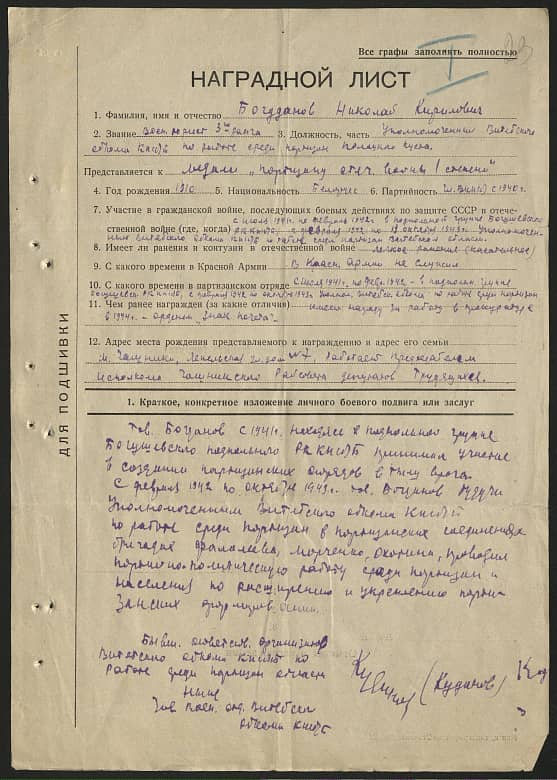 Все графы заполнять полностью
НАГРАДНОЙ ЛИСТ
1. Фамилия, имя и отчество Богданов Николай Кирилович
2. Звание Воен. юрист 3го ранга 3. Должность, часть Уполномоченный Витебского
обкома КП(б)Б по работе среди партизан
Представляется к медали „партизану отеч. войны I степени"
4. Год рождения 1910 5. Национальность Белорус 6. Партийность чл. ВКП(б) с 1940 г.
7. Участие в гражданской войне, последующих боевых действиях по защите СССР и отече-
с июля 1941 г. по февраль 1942 г. в подпольной группе Богушевского
ственной войне (где, когда) РК КП(б)Б, с февраля 1942 по октября 1943 г. Уполномочен-
ным Витебского обкома КП(б)Б по работе среди партизан Витебской области.
8. Имеет ли ранения и контузии в отечественной войне легкое ранение (касательное)
9. С какого времени в Красной Армии В Красн. Армии не служил
10. С какого времени в партизанском отряде с июля 1941 г. по февр. 1942 г. - в подпольн. группе
Богушевск. РК КП(б)Б, с февраля 1942 по октябрь 1943 г. по работе среди партизан
11. Чем ранее награжден (за какие отличия) имеет награду за работу в прокуратуре
в 1944 г. - орденом „Знак почета".
12. Адрес места рождения представляемого к награждению и адрес его семьи
м. Чашники, Лепельская ул. дом №7. Работает председателем
Исполкома Чашникского Райсовета депутатов Трудящихся.
1. Краткое, конкретное изложение личного боевого подвига или заслуг
Тов. Богданов с 1941 г. находясь в подпольной группе
Богушевского подпольного РК КП(б)Б принимал участие
в создании партизанских отрядов в тылу врага.
С февраля 1942 по октябрь 1943 г. тов. Богданов будучи
Уполномоченным Витебского обкома КП(б)Б
по работе среди партизан в партизанских соединениях
бригадах Фалалеева, Марченко, Охотина, проводил
партийно-политическую работу среди партизан и
населения по расширению и укреплению парти-
занских формирований.
Бывш. ответств. организатор
Витебского обкома КП(б)Б по
работе среди партизан области
Ныне
Зав. Воен. отд. Витебск.
обкома КП(б)Б
(Кудинов)
ДЛЯ ПОДШИВКИ